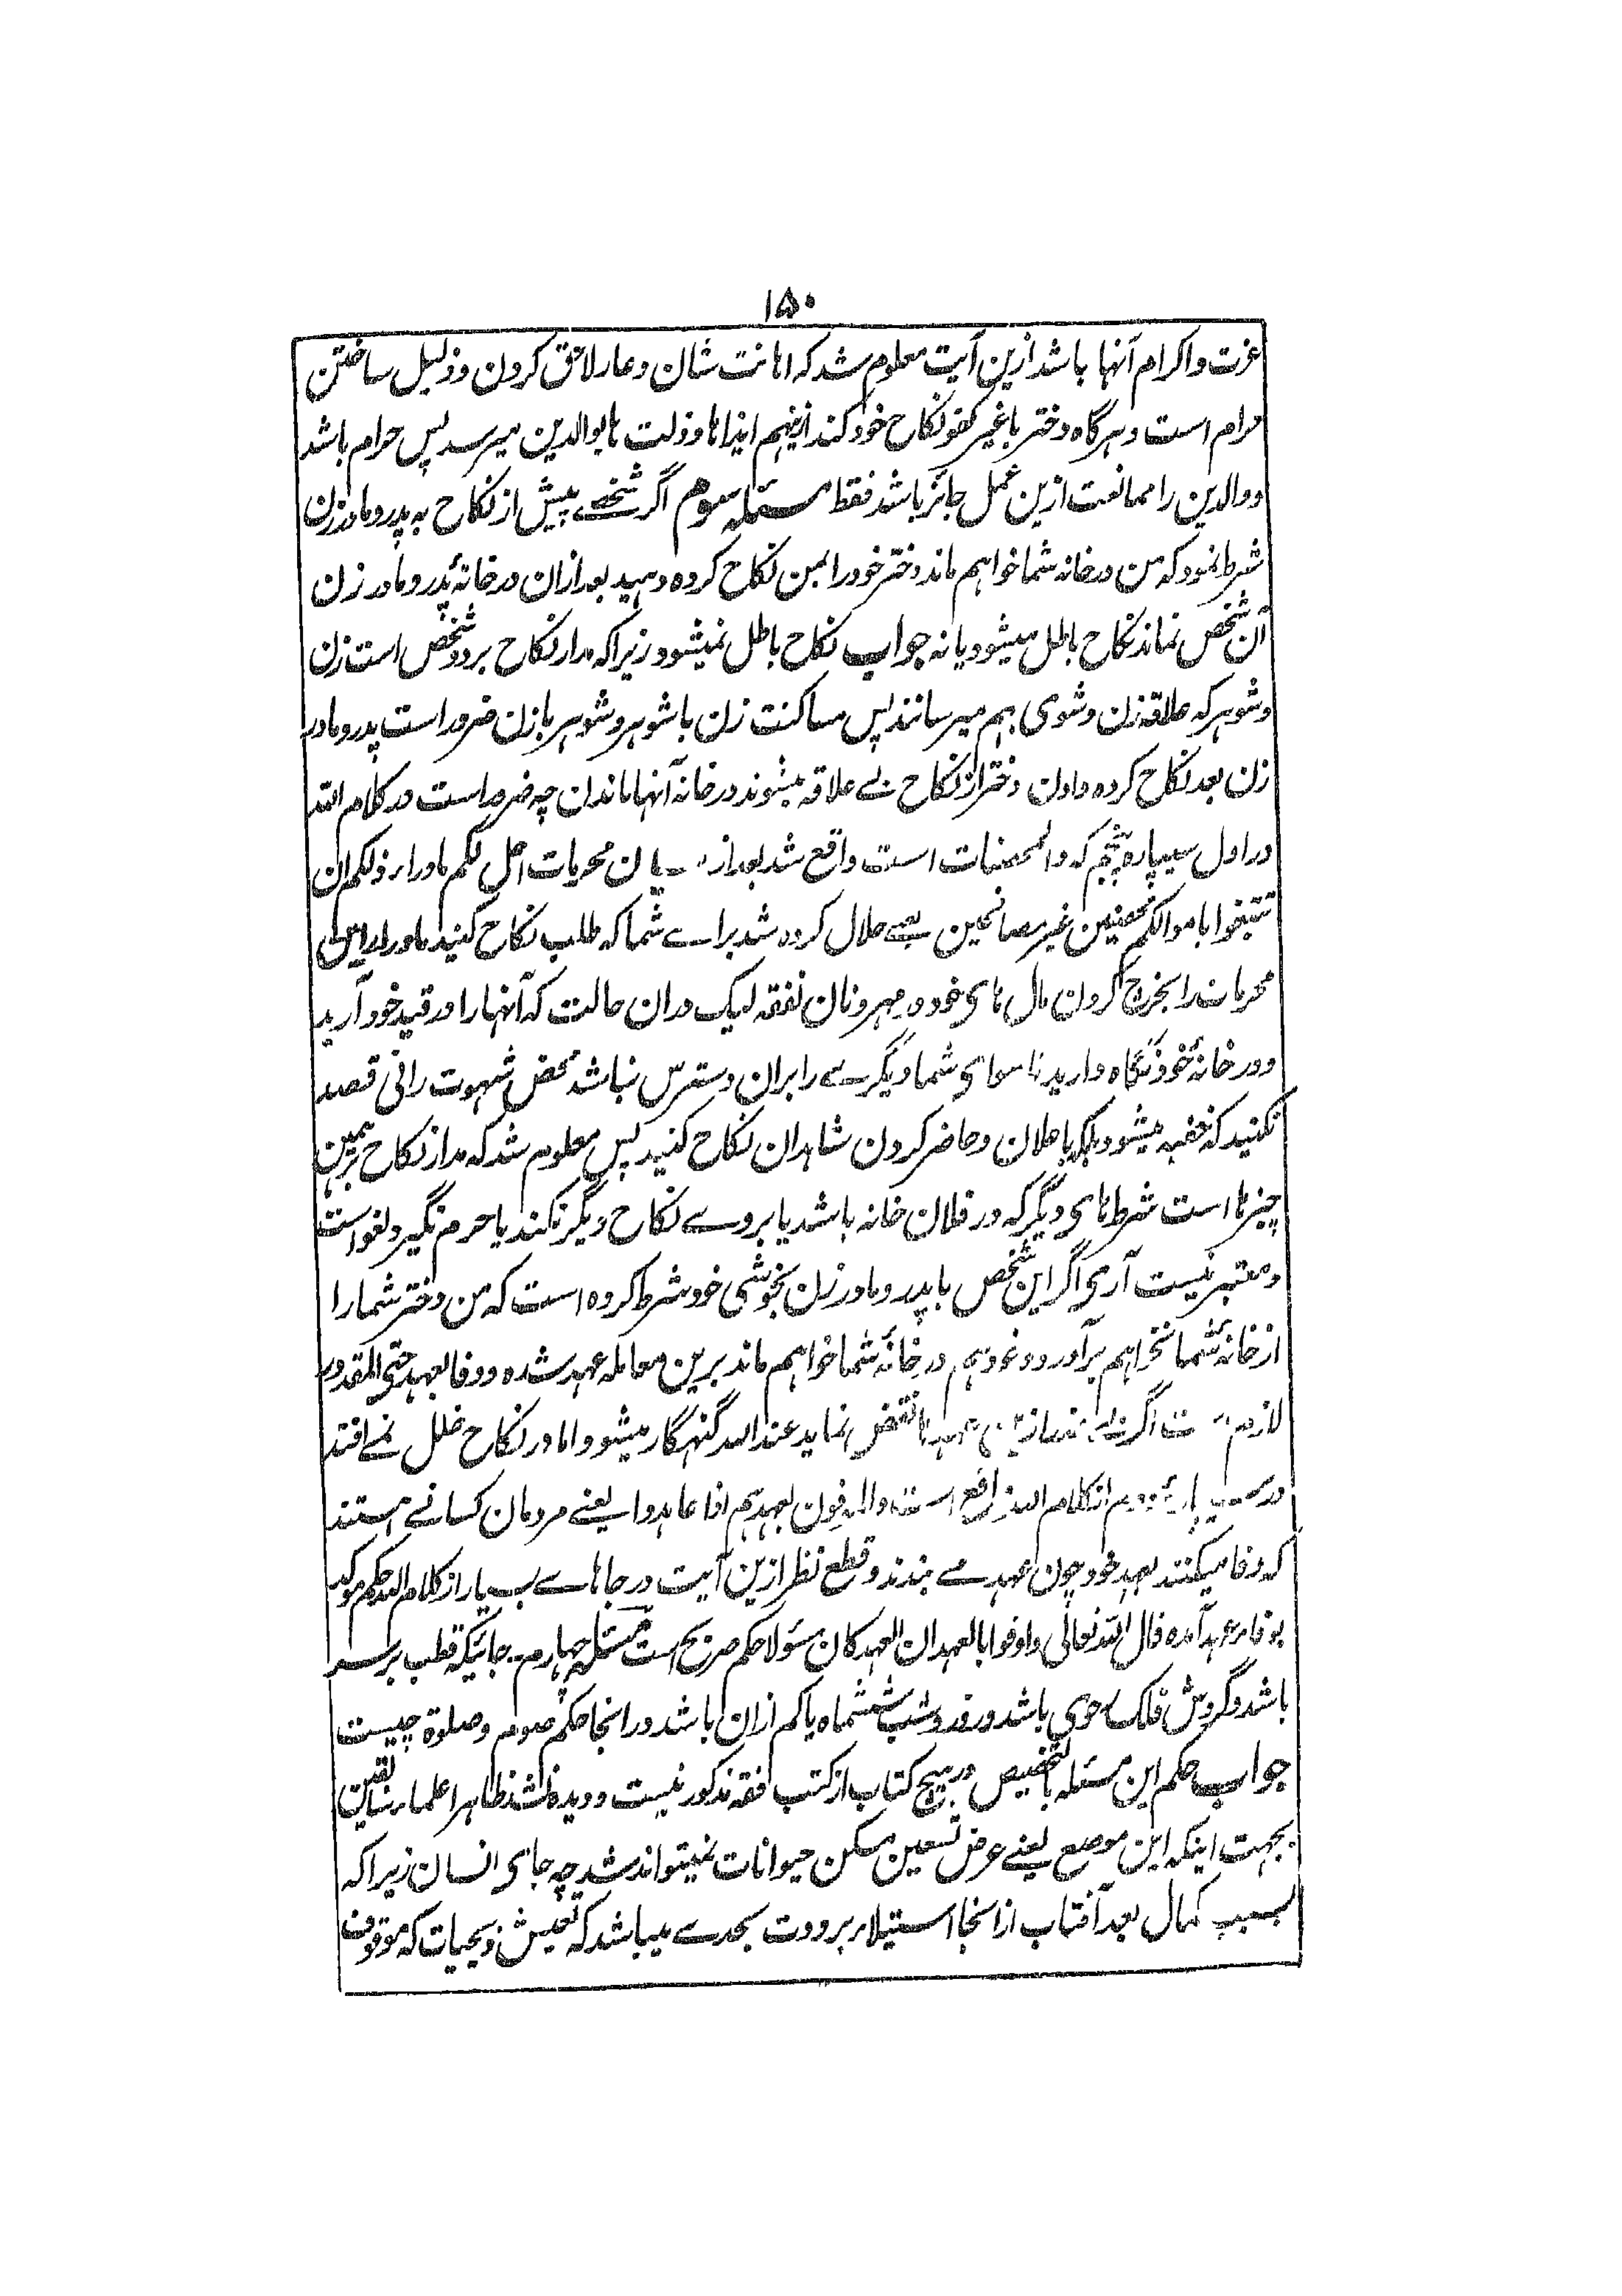 ۱۵۰
عزت و اکرام آنها باشد ازین آیت معلوم شد که اهانت شان و عار لاحق کردن و ذلیل ساختن
حرام است و هرگاه دختر با غیر کفو نکاح خود کند ازینهم ایذاها و ذلت ها بوالدین میرسد پس حرام باشد
و والدین را ممانعت ازین عمل جائز باشد فقط مسئله سوم اگر شخصے پیش از نکاح به پدر و مادر زن
شرط نمود که من در خانه شما خواهم ماند دختر خود را بمن نکاح کرده دهید بعد ازان در خانهٔ پدر و مادر زن
آن شخص نماند نکاح باطل میشود یا نه جواب نکاح باطل نمیشود زیرا که مدار نکاح بر دو شخص است زن
و شوهر که علاقه زن و شوی بهم میرسانند پس مساکنت زن با شوهر و شوهر با زن ضرور است پدر و مادر
زن بعد نکاح کرده دادن دختر از نکاح بے علاقه میشوند در خانه آنها ماندن چه ضرور است در کلام الله
در اول سیپاره پنجم که والمحصنات است واقع شد بعد از محرمات احل لکم ماوراء ذلکم ان
تبتغوا باموالکم محصنین غیر مسافحین یعنے حلال کرده شد براے شما که طلب نکاح کنید ماوراء این
محرمات را بخرج کردن مال های خود در مهر و نان نفقه لیک دران حالت که آنها را در قید خود آرید
و در خانهٔ خود نگاه دارید تا سوای شما دیگرے را بران دسترس نباشد محض شهوت رانی قصد
نکنید که خفیه میشود بلکه باعلان و حاضر کردن شاهدان نکاح کنید پس معلوم شد که مدار نکاح برهمین
چیزها است شرط های دیگر که در فلان خانه باشد یا بروے نکاح دیگر نکند یا حرم نگیرد لغو است
و معتبر نیست آری اگر این شخص با پدر و مادر زن بخوشی خود شرط کرده است که من دختر شما را
از خانهٔ شما نخواهم برآورد و خود هم در خانهٔ شما خواهم ماند برین معامله عهد شده و وفا بعهد حتی المقدور
لازم است اگر نقض نماید عند الله گنهگار میشود اما در نکاح خلل نمے افتد
در سیپارهٔ دوم از کلام الله واقع است والموفون بعهدهم اذا عاهدوا یعنے مردمان کسانے هستند
که وفا میکنند بعهد خود چون عهد مے بندند و قطع نظر ازین آیت در جاهاے بسیار از کلام الله حکم موکد
بوفاء عهد آمده قال الله تعالی و اوفوا بالعهد ان العهد کان مسئولا حکم صریح است مسئله چهارم جائیکه قطب بر سر
باشد و گردش فلک رحوی باشد و روز و شب ششماه یا کم ازان باشد در انجا حکم صوم و صلوة چیست
جواب حکم این مسئله بالتخصیص در هیچ کتاب از کتب فقه مذکور نیست و دیده نشد ظاهرا علماء سابقین
بجهت اینکه این موضع یعنے عرض تسعین مسکن حیوانات نمیتواند شد چه جای انسان زیرا که
بسبب کمال بعد آفتاب از انجا استیلاء برودت بحدے میباشد که تعیش ذویحیات که موقوف